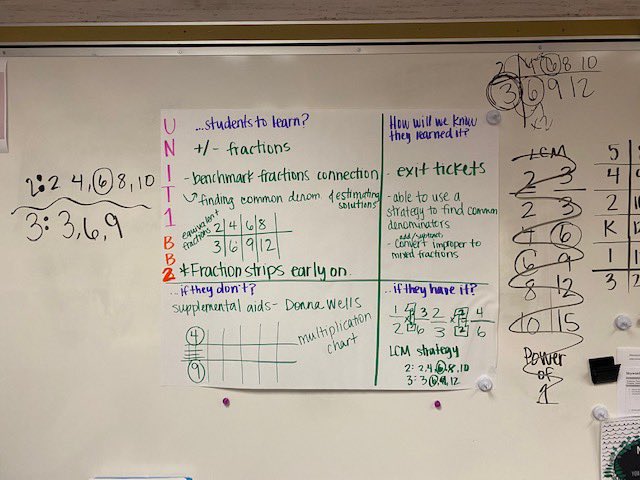 2: 2 4, 6 8, 10
3: 3, 6, 9
UNIT 1
BB2
...students to learn?
+/- fractions
- benchmark fractions connection
finding common denom. & estimating
solutions
equivalent
fractions
2 4 6 8
3 6 9 12
* Fraction strips early on
How will we know
they learned it?
- exit tickets
- able to use a
strategy to find common
denominators
add/subtract
- convert improper to
mixed fractions
...if they don't?
supplemental aids - Donna Wells
4
9
multiplication
chart
...if they have it?
1 3 2 4
2 6 3 6
LCM strategy
2: 2,4,6,8,10
3: 3,6,9,12
2 4 6 8 10
3 6 9 12
LCM
2 3
2 3
4 6
6 9
8 12
10 15
Power
of
1
5
4
2
K
1
3